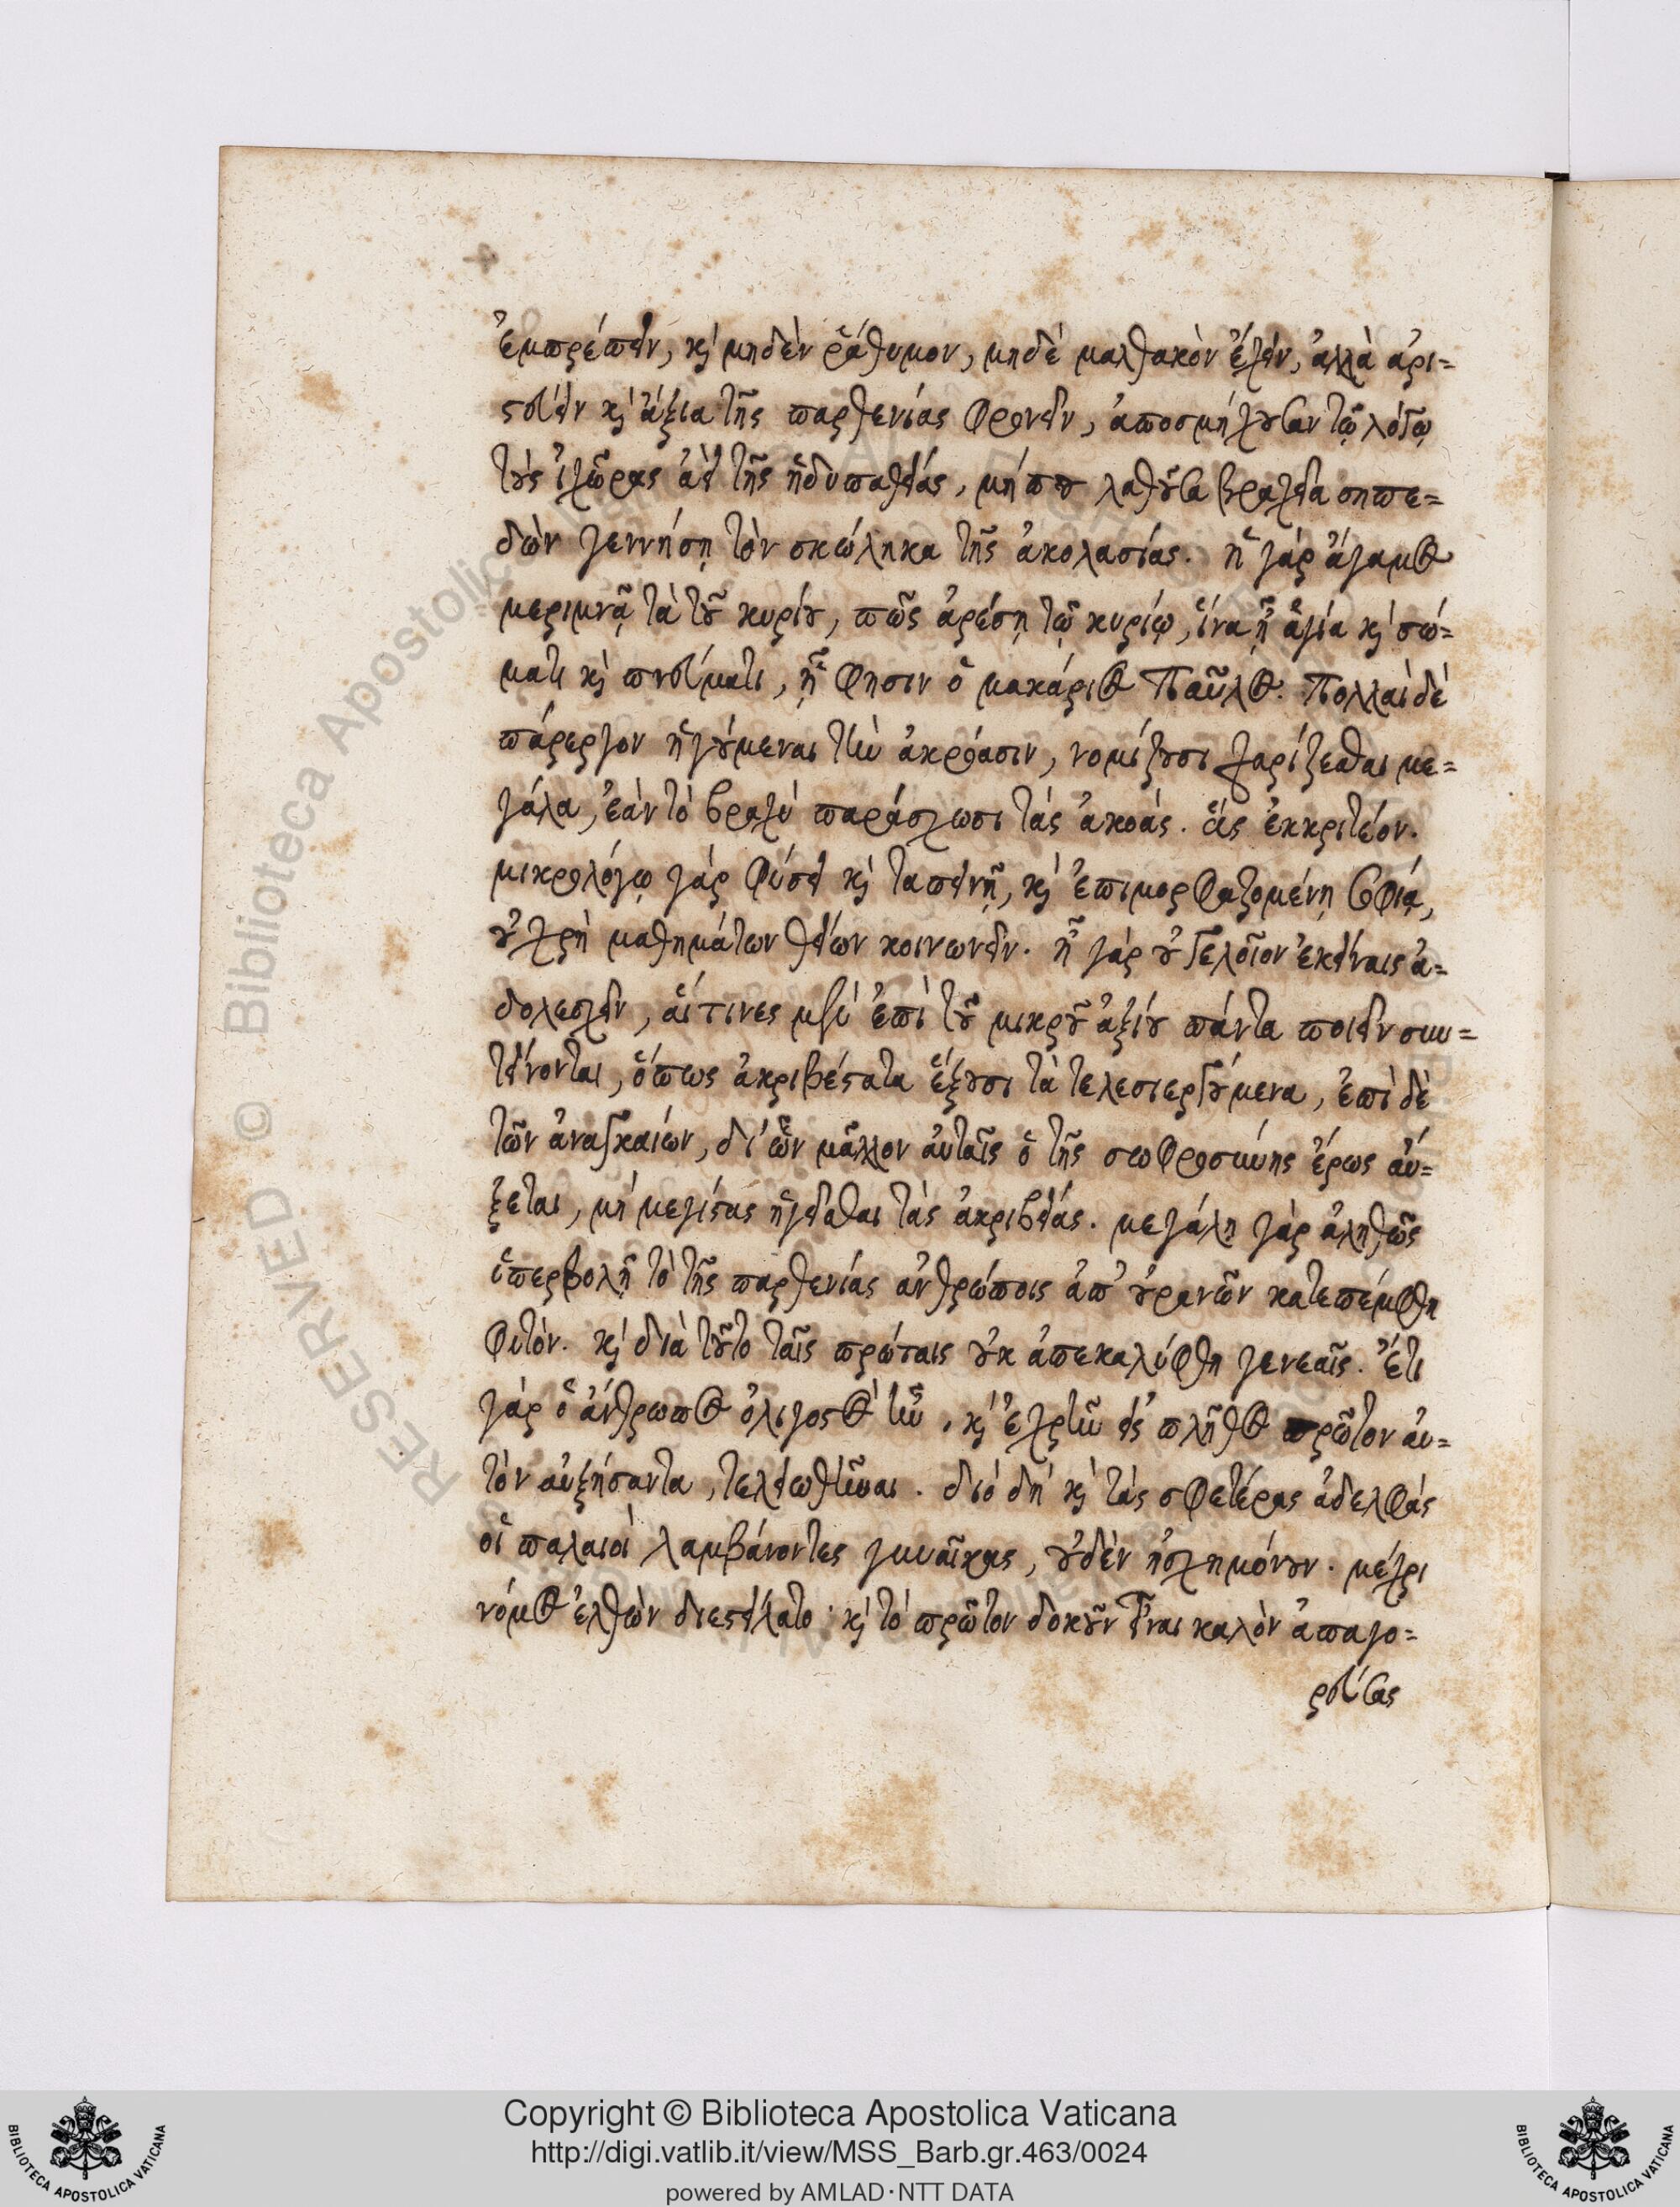 ἐμπρέπειν, καὶ μηδὲν ῥάθυμον, μηδὲ μαλθακὸν ἔχειν, ἀλλὰ ἀρι=
στεύειν καὶ ἄξια τῆς παρθενίας φρονεῖν, ἀποσμήχουσαν τῷ λόγῳ
τοὺς ἰχῶρας ἀεὶ τῆς ἡδυπαθείας, μήπου λαθοῦσα βραχεῖα σηπε=
δὼν γεννήσῃ τὸν σκώληκα τῆς ἀκολασίας. ἡ γὰρ ἄγαμος
μεριμνᾷ τὰ τοῦ κυρίου, πῶς ἀρέσῃ τῷ κυρίῳ, ἵνα ᾖ ἁγία καὶ σώ=
ματι καὶ πνεύματι, ᾗ φησιν ὁ μακάριος Παῦλος. Πολλαὶ δὲ
πάρεργον ἡγούμεναι τὴν ἀκρόασιν, νομίζουσι χαρίζεσθαι με=
γάλα, ἐὰν τὸ βραχὺ παράσχωσι τὰς ἀκοάς. ἃς ἐκκριτέον.
μικρολόγῳ γὰρ φύσει καὶ ταπεινῇ, καὶ ἐπιμορφαζομένῃ σοφίᾳ,
οὐ χρὴ μαθημάτων θείων κοινωνεῖν. ἦ γὰρ οὐ γελοῖον ἐκείναις ἀ=
δολεσχεῖν, αἵτινες μὲν ἐπὶ τοῦ μικροῦ ἀξίου πάντα ποιεῖν συν=
τείνονται, ὅπως ἀκριβέστατα ἕξουσι τὰ τελεσιεργούμενα, ἐπὶ δὲ
τῶν ἀναγκαίων, δι' ὧν μᾶλλον αὐταῖς ὁ τῆς σωφροσύνης ἔρως αὔ=
ξεται, μὴ μεγίστας ἡγεῖσθαι τὰς ἀκριβείας. μεγάλη γὰρ ἀληθῶς
ὑπερβολῇ τὸ τῆς παρθενίας ἀνθρώποις ἀπ' οὐρανῶν κατεπέμφθη
φυτόν. καὶ διὰ τοῦτο ταῖς πρώταις οὐκ ἀπεκαλύφθη γενεαῖς. ἔτι
γὰρ ὁ ἄνθρωπος ὀλιγοστὸς ἦν, καὶ ἐχρῆν εἰς πλῆθος πρῶτον αὐ=
τὸν αὐξήσαντα, τελειωθῆναι. διὸ δὴ καὶ τὰς σφετέρας ἀδελφὰς
οἱ παλαιοὶ λαμβάνοντες γυναῖκας, οὐδὲν ἠσχημόνουν. μέχρι
νόμος ἐλθὼν διεστείλατο· καὶ τὸ πρῶτον δοκοῦν εἶναι καλὸν ἀπαγο=
ρεύσας
Copyright © Biblioteca Apostolica Vaticana
http://digi.vatlib.it/view/MSS_Barb.gr.463/0024
powered by AMLAD·NTT DATA